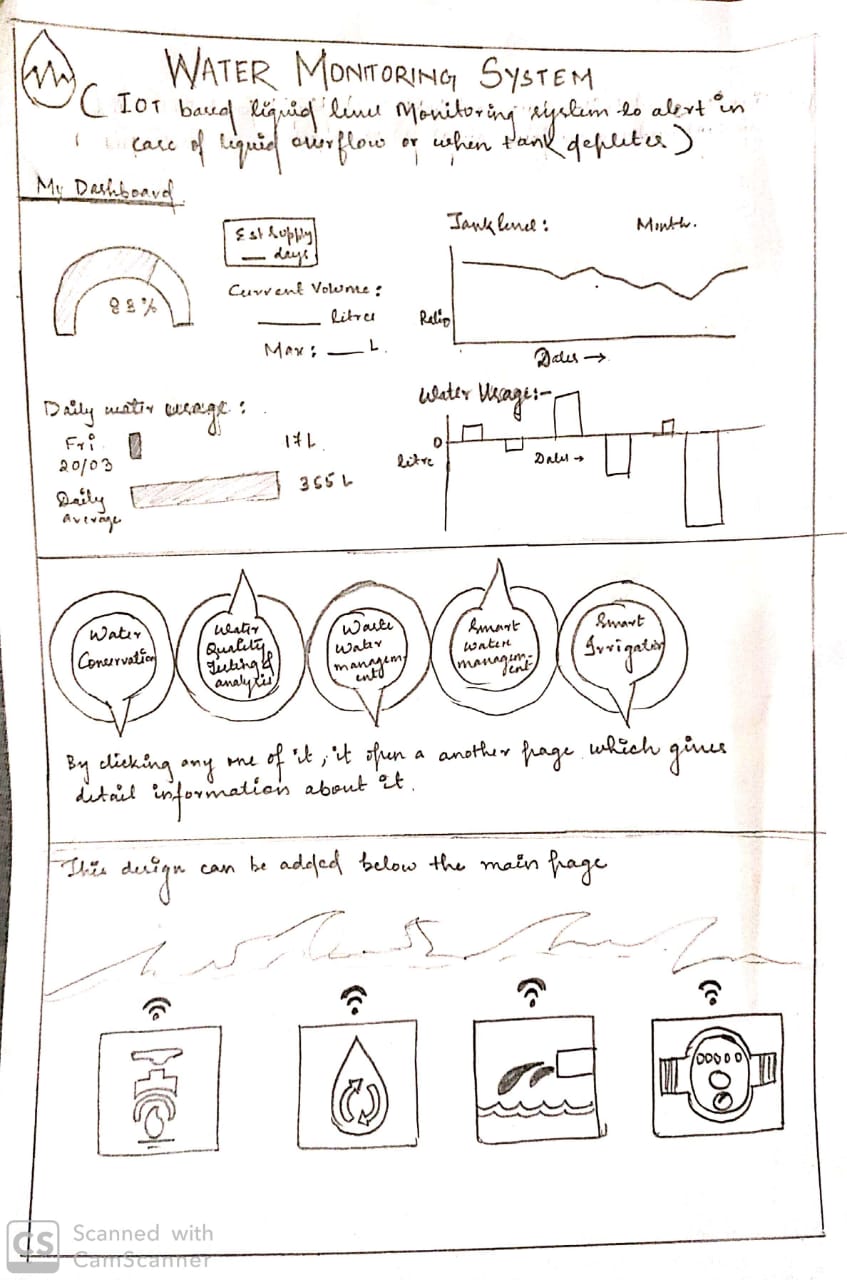 WATER MONITORING SYSTEM
( IOT based liquid level Monitoring system to alert in
case of liquid overflow or when tank depletes )
My Dashboard
Est Supply
days
83%
Current Volume :
Litres
Max : L.
Tank level : Month.
Ratio
Dates →
Daily water usage :
Fri 17 L
20/03
Daily 365 L
average
Water Usage:-
0
litre
Dates →
Water
Conservation
Water
Quality
Testing &
analysis
Waste
Water
managem-
ent
Smart
Water
managem-
ent
Smart
Irrigation
By clicking any one of it, it open a another page which gives
detail information about it.
This design can be added below the main page
CS Scanned with
CamScanner